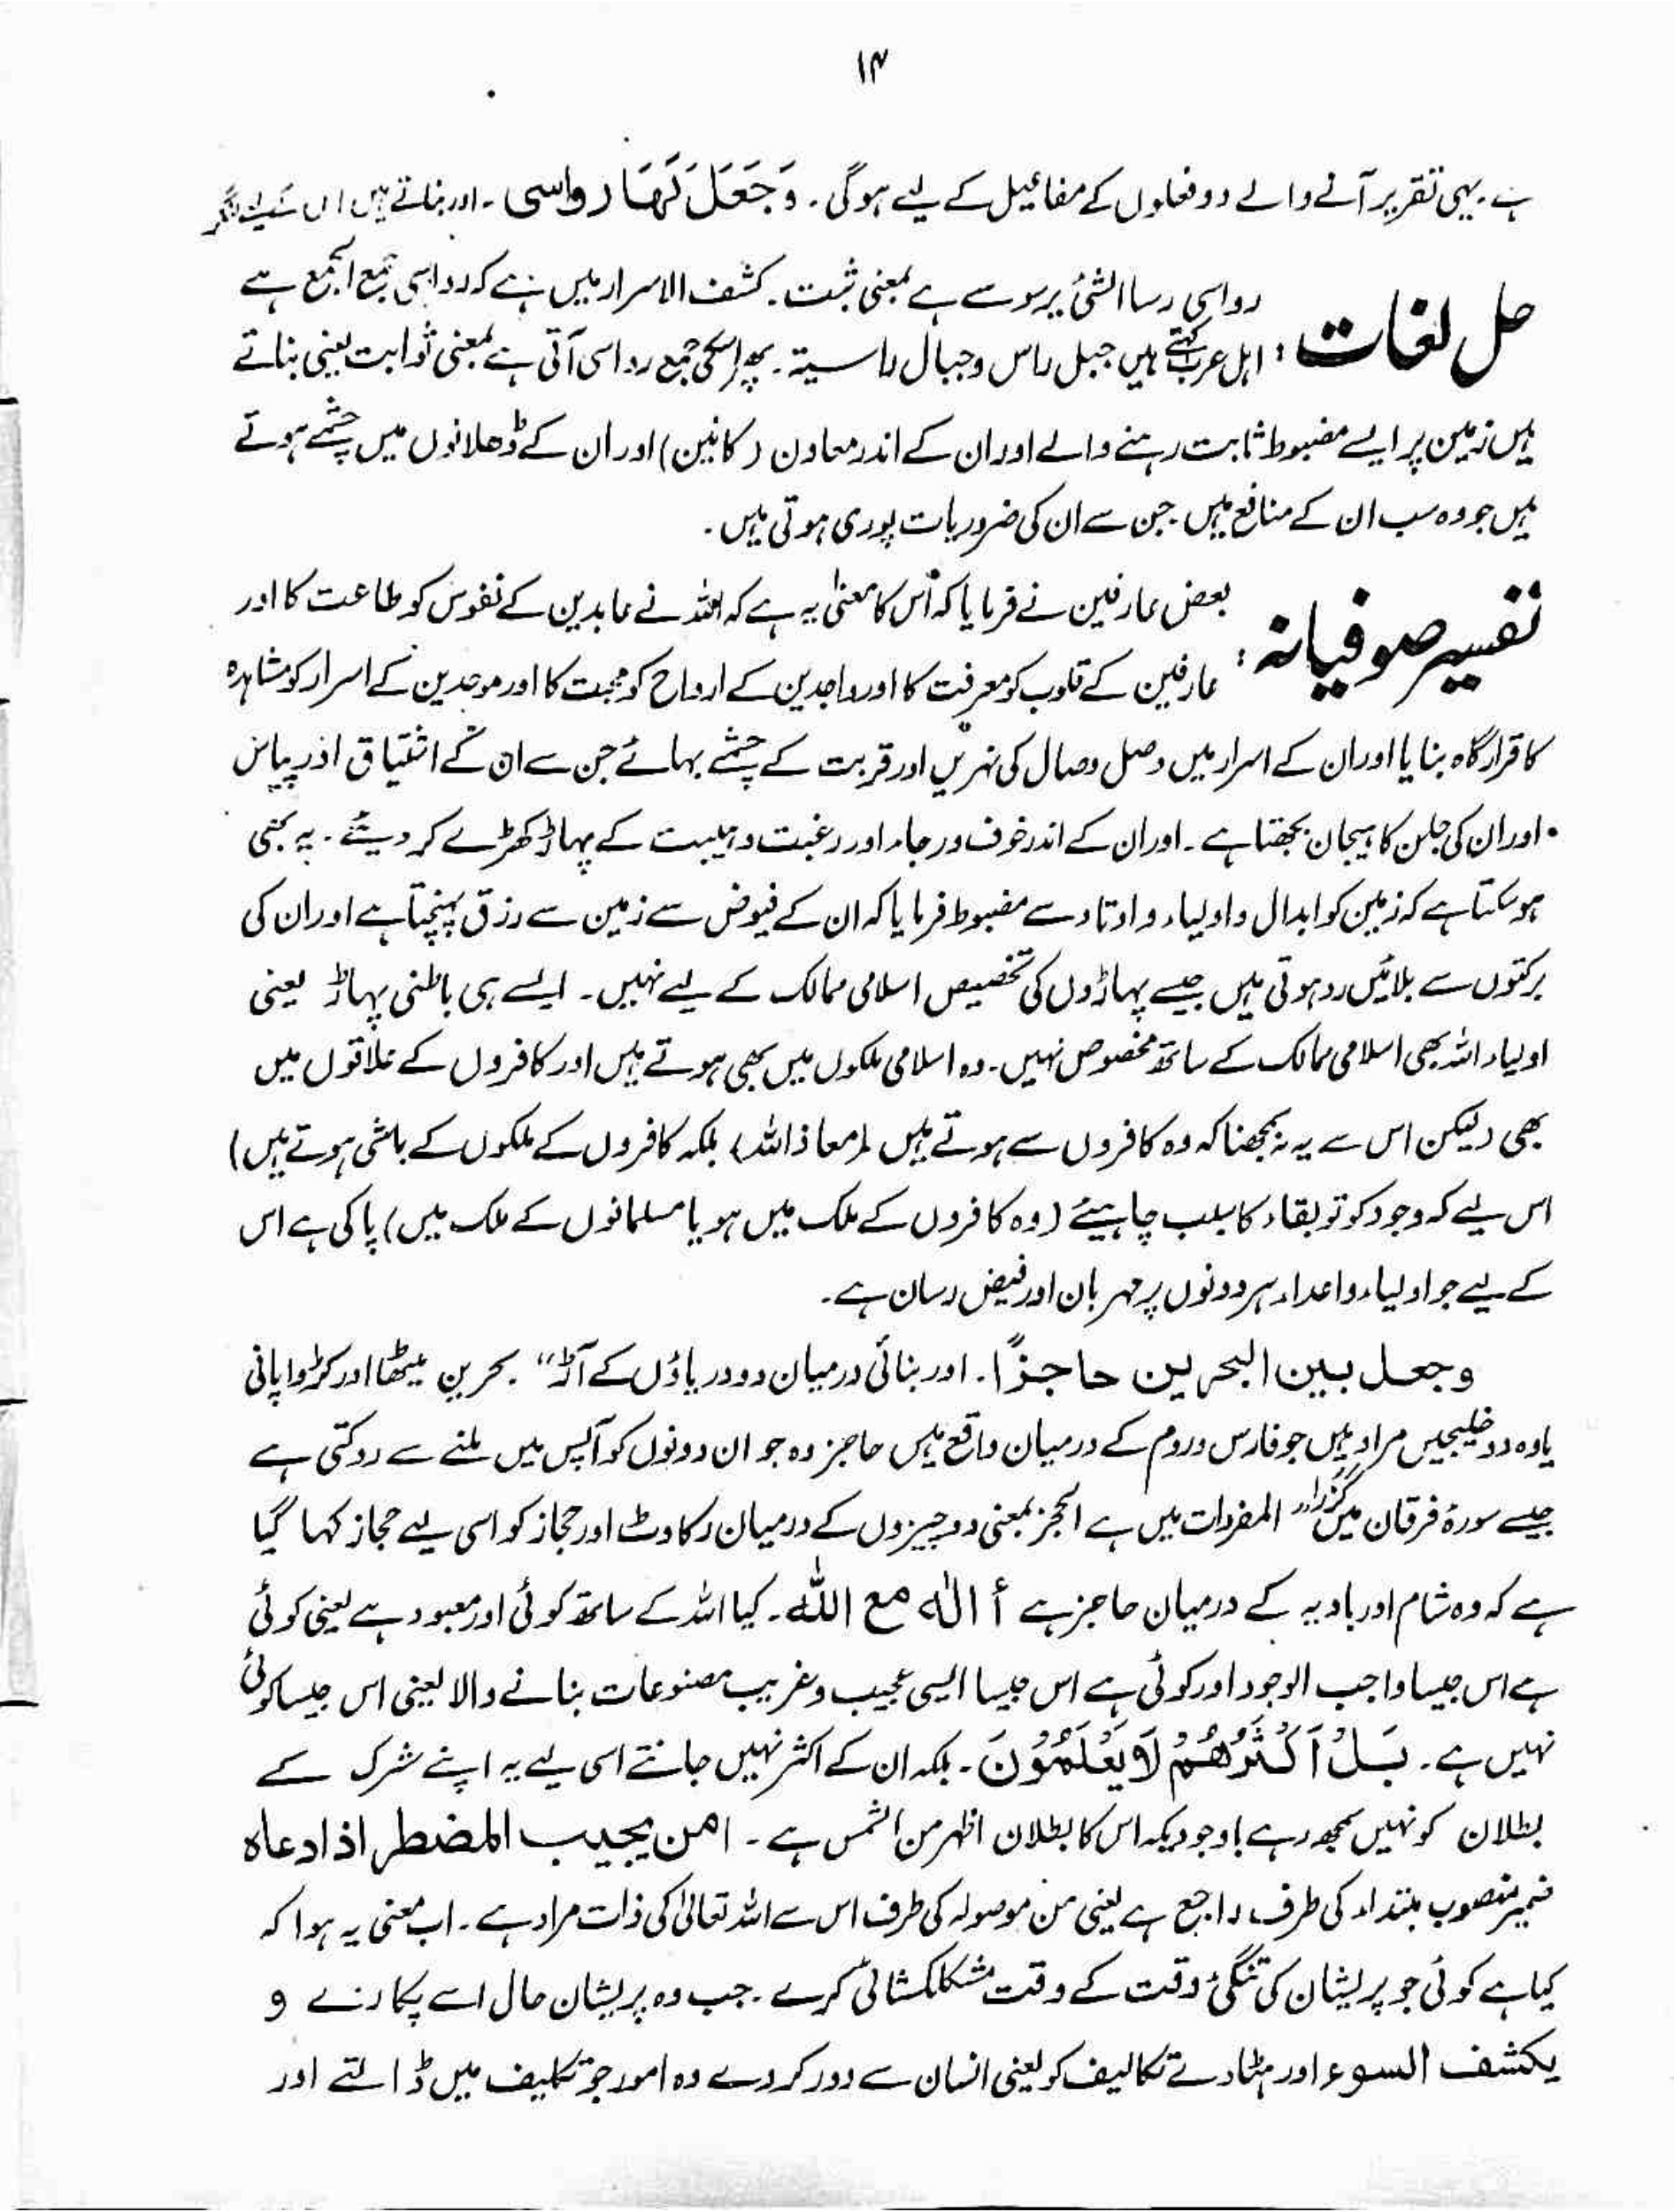 ۱۴
ہے۔ یہی تقریر آنے والے دو فعلوں کے مفاعیل کے لیے ہوگی۔ وَجَعَلَ لَهَا رواسی۔ اور بناتے ہیں ان کے لیے لنگر
حل لغات:
رواسی رسا الشئ یرسو سے ہے بمعنی ثبت۔ کشف الاسرار میں ہے کہ رواسی جمع الجمع ہے
اہل عرب کہتے ہیں جبل راس وجبال راسیۃ۔ پھر اسکی جمع رواسی آتی ہے بمعنی ثوابت یعنی بناتے
ہیں زمین پر ایسے مضبوط ثابت رہنے والے اور ان کے اندر معاون (کانیں) اور ان کے ڈھلانوں میں چشمے ہوتے
ہیں جو وہ سب ان کے منافع ہیں۔ جن سے ان کی ضروریات پوری ہوتی ہیں۔
تفسیر صوفیانہ:
بعض عارفین نے فرمایا کہ اس کا معنیٰ یہ ہے کہ اللہ نے عابدین کے نفوس کو طاعت کا اور
عارفین کے قلوب کو معرفت کا اور واجدین کے ارواح کو محبت کا اور موحدین کے اسرار کو مشاہدہ
کا قرارگاہ بنایا اور ان کے اسرار میں وصل وصال کی نہریں اور قربت کے چشمے بہائے جن سے ان کے اشتیاق اور پیاس
اور ان کی جلن کا ہیجان بجھتا ہے۔ اور ان کے اندر خوف ورجاء اور رغبت وہیبت کے پہاڑ کھڑے کر دیئے۔ یہ بھی
ہوسکتا ہے کہ زمین کو ابدال واولیاء واوتاد سے مضبوط فرمایا کہ ان کے فیوض سے زمین سے رزق پہنچتا ہے اور ان کی
برکتوں سے بلائیں رد ہوتی ہیں جیسے پہاڑوں کی تخصیص اسلامی ممالک کے لیے نہیں۔ ایسے ہی باطنی پہاڑ یعنی
اولیاء اللہ بھی اسلامی ممالک کے ساتھ مخصوص نہیں۔ وہ اسلامی ملکوں میں بھی ہوتے ہیں اور کافروں کے علاقوں میں
بھی (لیکن اس سے یہ نہ سمجھنا کہ وہ کافروں سے ہوتے ہیں (معاذ اللہ) بلکہ کافروں کے ملکوں کے باشی ہوتے ہیں)
اس لیے کہ وجود کو تو بقاء کا سبب چاہیئے (وہ کافروں کے ملک میں ہو یا مسلمانوں کے ملک میں) پاکی ہے اس
کے لیے جو اولیاء واعداء ہر دونوں پر مہربان اور فیض رسان ہے۔
وجعل بین البحرین حاجزًا۔ اور بنائی درمیان دو دریاؤں کے آڑ" بحرین میٹھا اور کڑوا پانی
یا وہ دو خلیجیں مراد ہیں جو فارس وروم کے درمیان واقع ہیں حاجز وہ جو ان دونوں کو آپس میں ملنے سے روکتی ہے
جیسے سورۂ فرقان میں گزرا۔ المفردات میں ہے الحجز بمعنی دو چیزوں کے درمیان رکاوٹ اور حجاز کو اسی لیے حجاز کہا گیا
ہے کہ وہ شام اور بادیہ کے درمیان حاجز ہے أ الٰہ مع اللّٰہ۔ کیا اللہ کے ساتھ کوئی اور معبود ہے یعنی کوئی
ہے اس جیسا واجب الوجود اور کوئی ہے اس جیسا ایسی عجیب وغریب مصنوعات بنانے والا یعنی اس جیسا کوئی
نہیں ہے۔ بَلْ اَكْثَرُهُمْ لَا يَعْلَمُوْنَ۔ بلکہ ان کے اکثر نہیں جانتے اسی لیے یہ اپنے شرک کے
بطلان کو نہیں سمجھ رہے باوجودیکہ اس کا بطلان اظہر من الشمس ہے۔ امن یجیب المضطر اذا دعاہ
ضمیر منصوب مبتداء کی طرف راجع ہے یعنی من موصولہ کی طرف اس سے اللہ تعالیٰ کی ذات مراد ہے۔ اب معنی یہ ہوا کہ
کیا ہے کوئی جو پریشان کی تنگئ وقت کے وقت مشکلکشائی کرے۔ جب وہ پریشان حال اسے پکارے و
یکشف السوء اور ہٹا دے تکالیف کو یعنی انسان سے دور کر دے وہ امور جو تکلیف میں ڈالتے اور